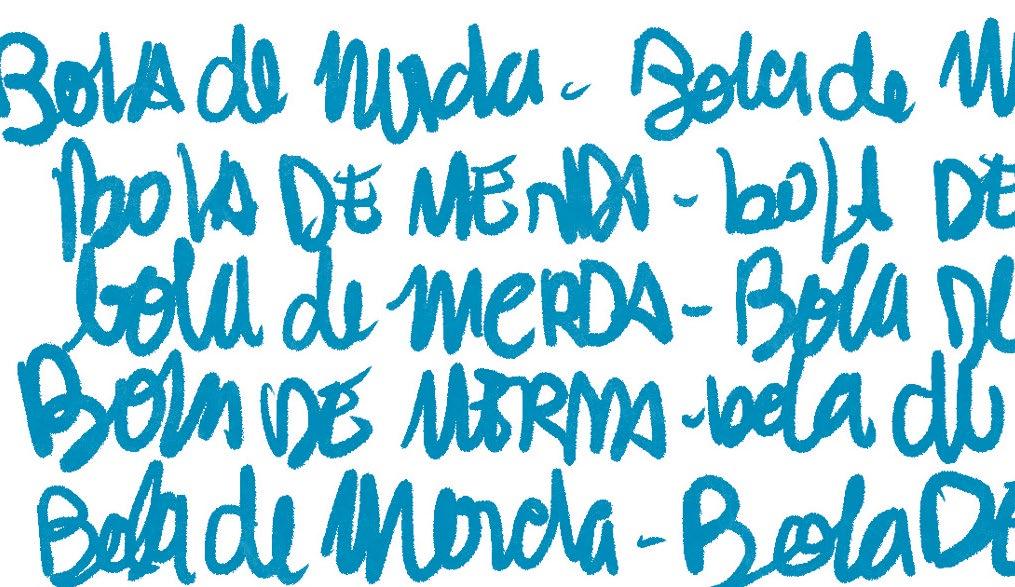 Bola de Merda - Bola de M
Bola DE MERDA - bola DE
bola de MERDA - Bola De
Bola DE MERDA - bola de
Bola de Merda - Boola DE